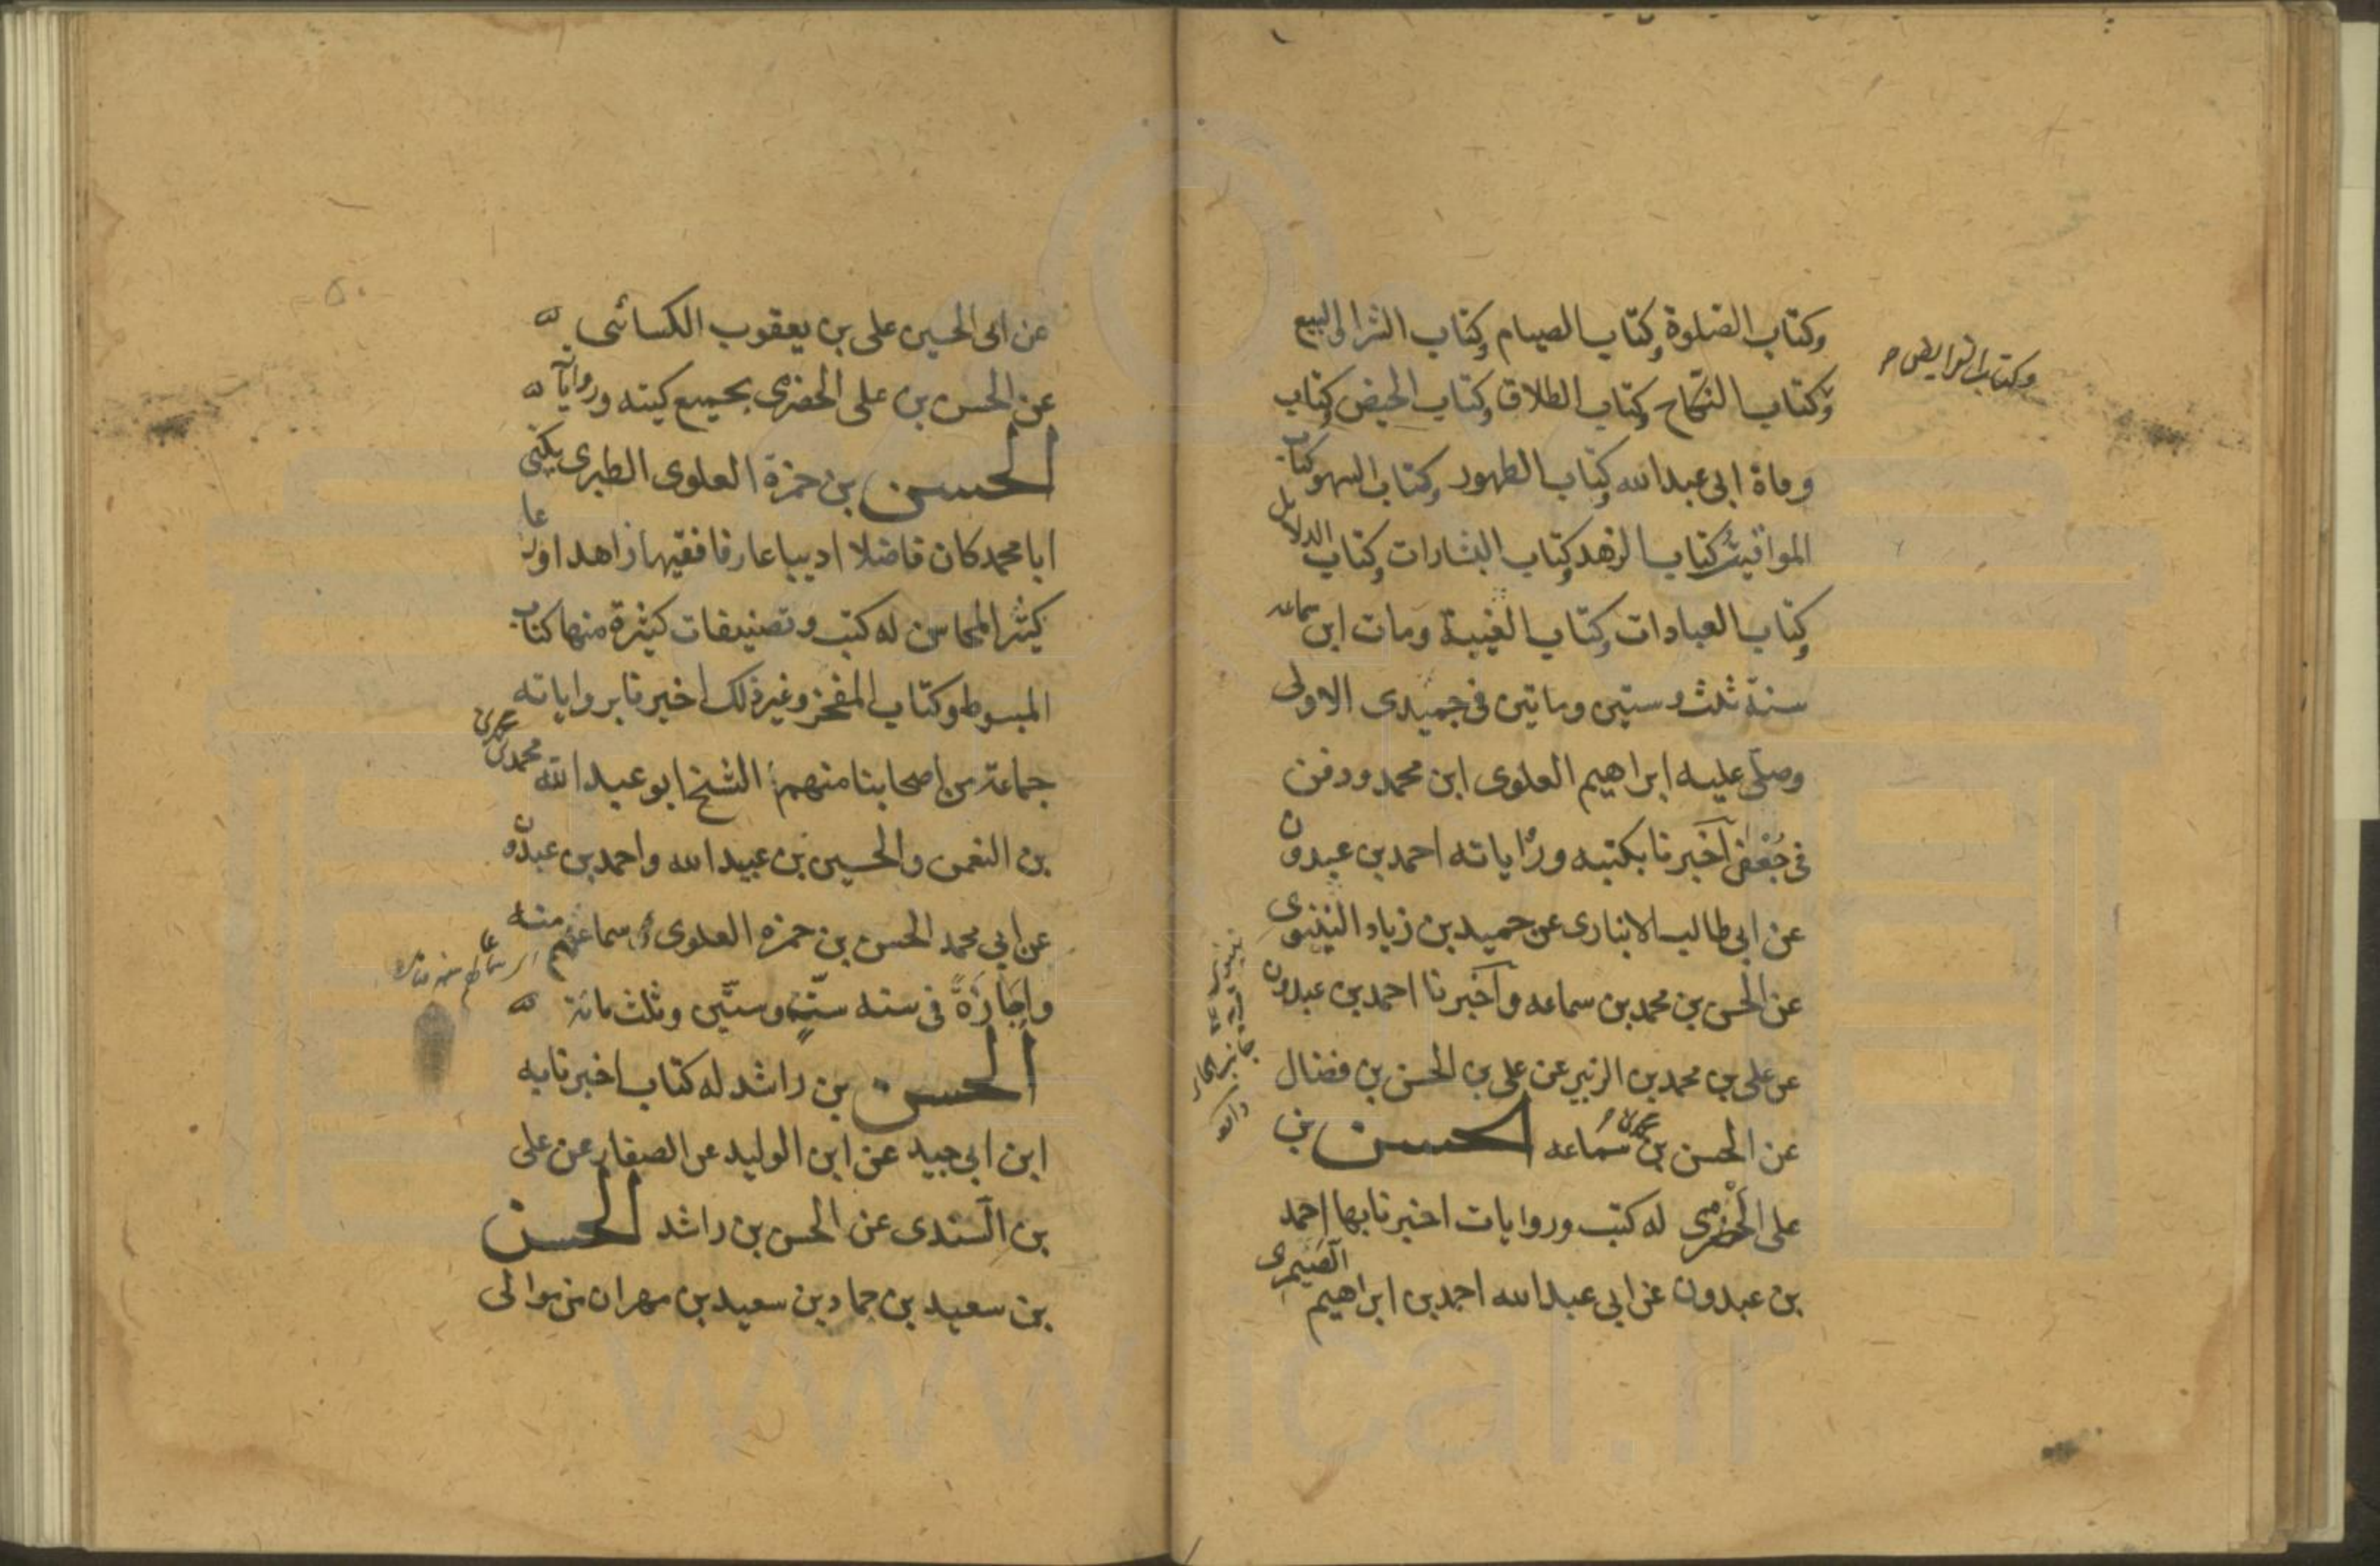 وكتاب الصلوة وكتاب الصيام وكتاب الشرا والبيع
وكتاب الفرايض
وكتاب النكاح وكتاب الطلاق وكتاب الحيض وكتاب
وفاة ابى عبد الله وكتاب الطهور وكتاب السهو وكتاب
المواقيت وكتاب الزهد وكتاب البشارات وكتاب الدلايل
وكتاب العبادات وكتاب الغيبة ومات ابن سماعه
سنة ثلث وستين وماتين فى جميدى الاولى
وصلى عليه ابراهيم العلوى ابن محمد ودفن
فى جعفى اخبرنا بكتبه ورواياته احمد بن عبدون
عن ابى طالب الانبارى عن حميد بن زياد النينوى
عن الحسن بن محمد بن سماعه واخبرنا احمد بن عبدون
عن على بن محمد بن الزبير عن على بن الحسن بن فضال
عن الحسن بن محمد بن سماعه الحسن بن
على الحضرمى له كتب وروايات اخبرنا بها احمد
بن عبدون عن ابى عبد الله احمد بن ابراهيم الصيمرى
عن ابى الحسين على بن يعقوب الكسائى
عن الحسن بن على الحضرمى بجميع كتبه ورواياته
الحسن بن حمزة العلوى الطبرى يكنى
ابا محمد كان فاضلا اديبا عارفا فقيها زاهدا ورعا
كثير المحاسن له كتب وتصنيفات كثيرة منها كتاب
المبسوط وكتاب المفخر وغير ذلك اخبرنا برواياته
جماعة من اصحابنا منهم الشيخ ابو عبد الله محمد بن محمد
بن النعمن والحسين بن عبيد الله واحمد بن عبدون
عن ابى محمد الحسن بن حمزه العلوى سماعهم منه
واجازة فى سنه ستة وستين وثلث مائة
الحسن بن راشد له كتاب اخبرنا به
ابن ابى جيد عن ابن الوليد عن الصفار عن على
بن السندى عن الحسن بن راشد الحسن
بن سعيد بن حماد بن سعيد بن مهران من موالى
www.ical.ir